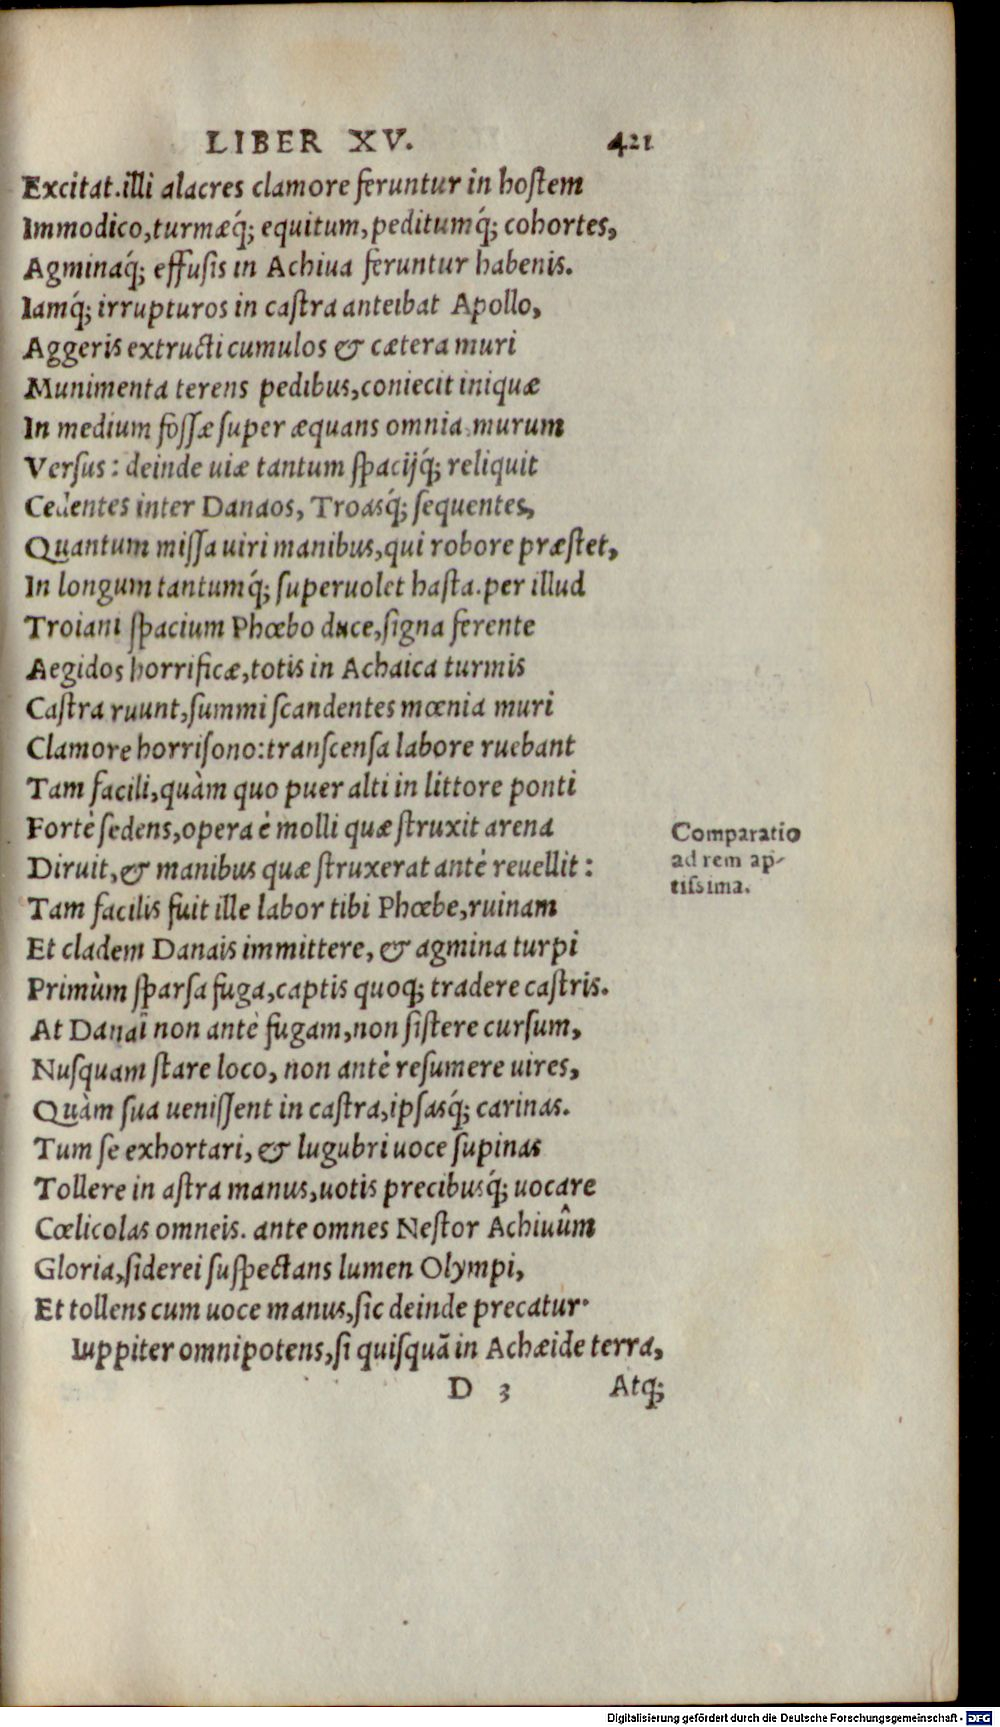 LIBER XV. 421
Excitat.illi alacres clamore feruntur in hostem
Immodico,turmæq́; equitum,peditumq́; cohortes,
Agminaq́; effusis in Achiua feruntur habenis.
Iamq́; irrupturos in castra anteibat Apollo,
Aggeris extructi cumulos & cætera muri
Munimenta terens pedibus,coniecit iniquæ
In medium fossæ super æquans omnia murum
Versus: deinde uiæ tantum spacijq́; reliquit
Cedentes inter Danaos, Troasq́; sequentes,
Quantum missa uiri manibus,qui robore præstet,
In longum tantumq́; superuolet hasta.per illud
Troiani spacium Phœbo duce,signa ferente
Aegidos horrificæ,totis in Achaica turmis
Castra ruunt,summi scandentes mœnia muri
Clamore horrisono:transcensa labore ruebant
Tam facili,quàm quo puer alti in littore ponti
Fortè sedens,opera è molli quæ struxit arena
Comparatio
ad rem ap-
tissima.
Diruit,& manibus quæ struxerat antè reuellit:
Tam facilis fuit ille labor tibi Phœbe,ruinam
Et cladem Danais immittere, & agmina turpi
Primùm sparsa fuga,captis quoq; tradere castris.
At Danai non antè fugam,non sistere cursum,
Nusquam stare loco, non antè resumere uires,
Quàm sua uenissent in castra,ipsasq́; carinas.
Tum se exhortari, & lugubri uoce supinas
Tollere in astra manus,uotis precibusq́; uocare
Cœlicolas omneis. ante omnes Nestor Achiuûm
Gloria,siderei suspectans lumen Olympi,
Et tollens cum uoce manus,sic deinde precatur.
Iuppiter omnipotens,si quisquã in Achæide terra,
D 3 Atq;
Digitalisierung gefördert durch die Deutsche Forschungsgemeinschaft - DFG